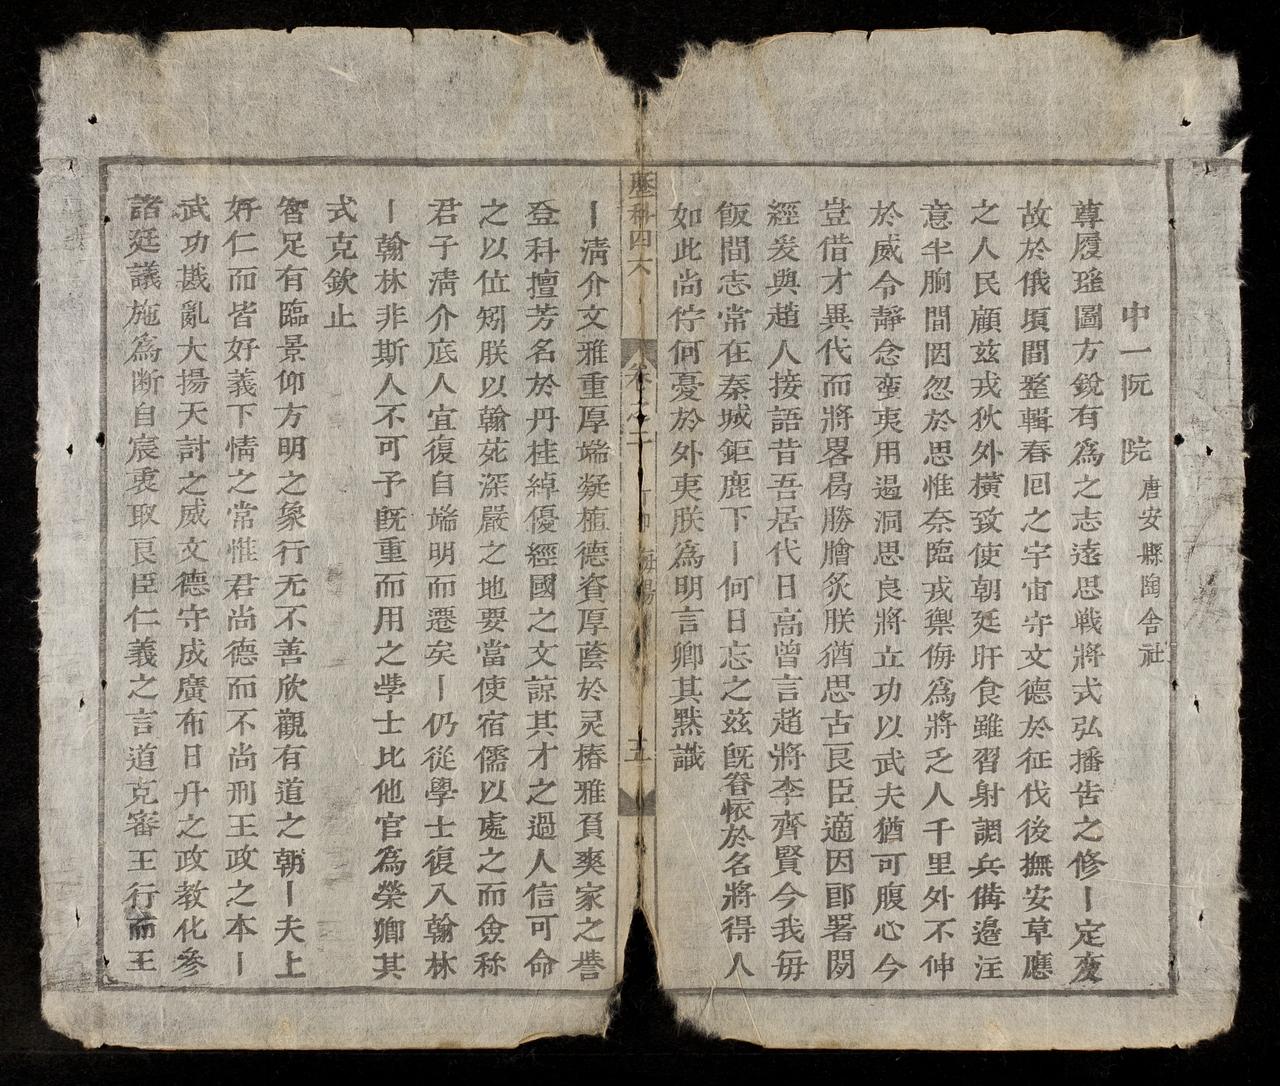 中一阮 院 唐安縣陶舍社
尊履瑤圖方銳有爲之志遠思戰將式弘播告之修〡定慶
故於俄頃間整輯春囘之宇宙守文德於征伐後撫安草應
之人民顧玆戎狄外橫致使朝廷旰食雖習射調兵備邊注
意半胸間罔忽於思惟奈臨戎禦侮爲將乏人千里外不伸
於威令靜念蛮夷用遏洞思良將立功以武夫猶可腹心今
豈借才異代而將畧曷勝膾炙朕猶思古良臣適因郎署閱
經爰與趙人接語昔吾居代日高曾言趙將李齊賢今我每
飯間志常在秦城鉅鹿下〡何日忘之玆旣眷懷於名將得人
如此尚佇何憂於外夷朕爲明言卿其黙識
歷科四六 卷之 五
〡淸介文雅重厚端凝植德資厚蔭於灵椿雅負爽家之譽
登科擅芳名於丹桂綽優經國之文諒其才之過人信可命
之以位矧朕以翰苑深嚴之地要當使宿儒以處之而僉称
君子淸介底人宜復自端明而遷矣〡仍從學士復入翰林
〡翰林非斯人不可予旣重而用之學士比他官爲榮卿其
式克欽止
智足有臨景仰方明之象行无不善欣觀有道之朝〡夫上
好仁而皆好義下情之常惟君尚德而不尚刑王政之本〡
武功戡亂大揚天討之威文德守成廣布日升之政教化參
諸廷議施爲断自宸衷取良臣仁義之言道克審王行而王